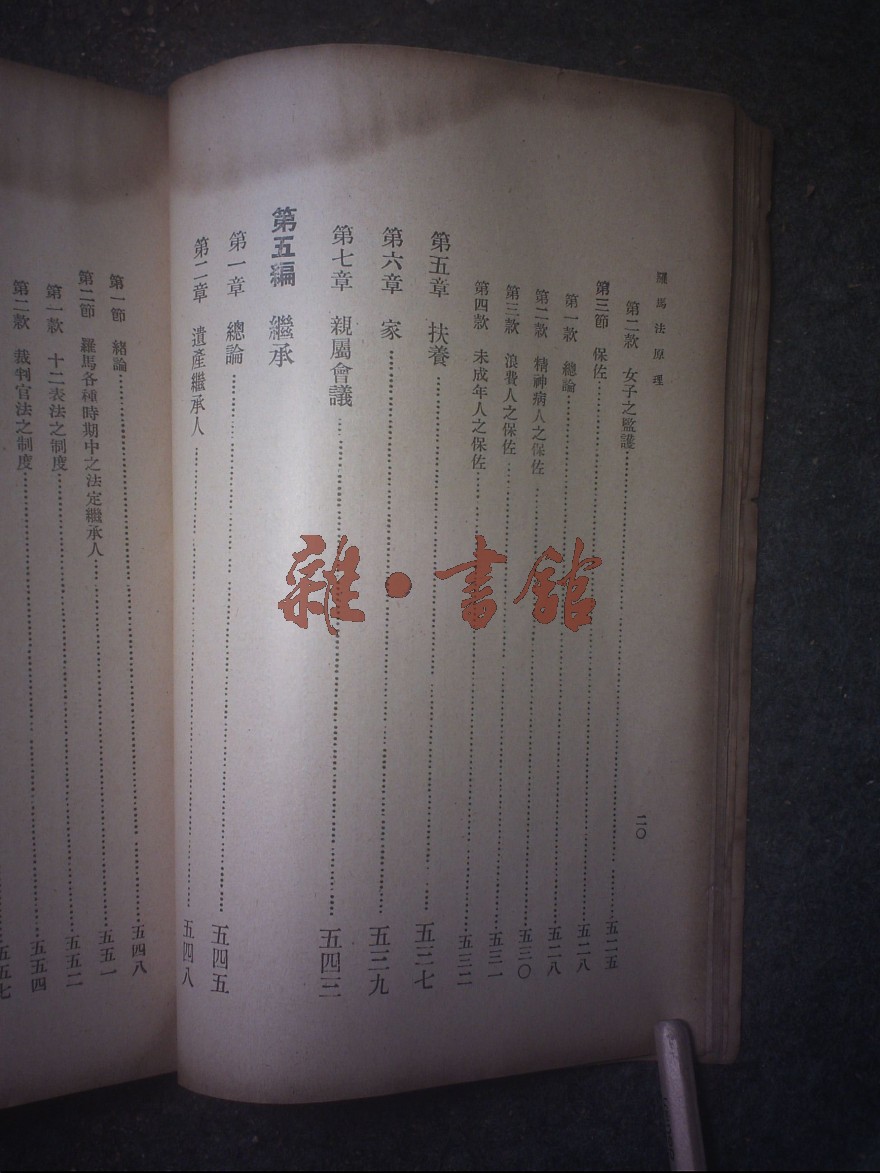 羅馬法原理
二〇
第二款 女子之監護 五二五
第三節 保佐 五二八
第一款 總論 五二八
第二款 精神病人之保佐 五三〇
第三款 浪費人之保佐 五三一
第四款 未成年人之保佐 五三二
第五章 扶養 五三七
第六章 家 五三九
第七章 親屬會議 五四三
第五編 繼承
第一章 總論 五四五
第二章 遺產繼承人 五四八
第一節 緒論 五四八
第二節 羅馬各種時期中之法定繼承人 五五一
第一款 十二表法之制度 五五二
第二款 裁判官法之制度 五五四
五五七
雜·書館